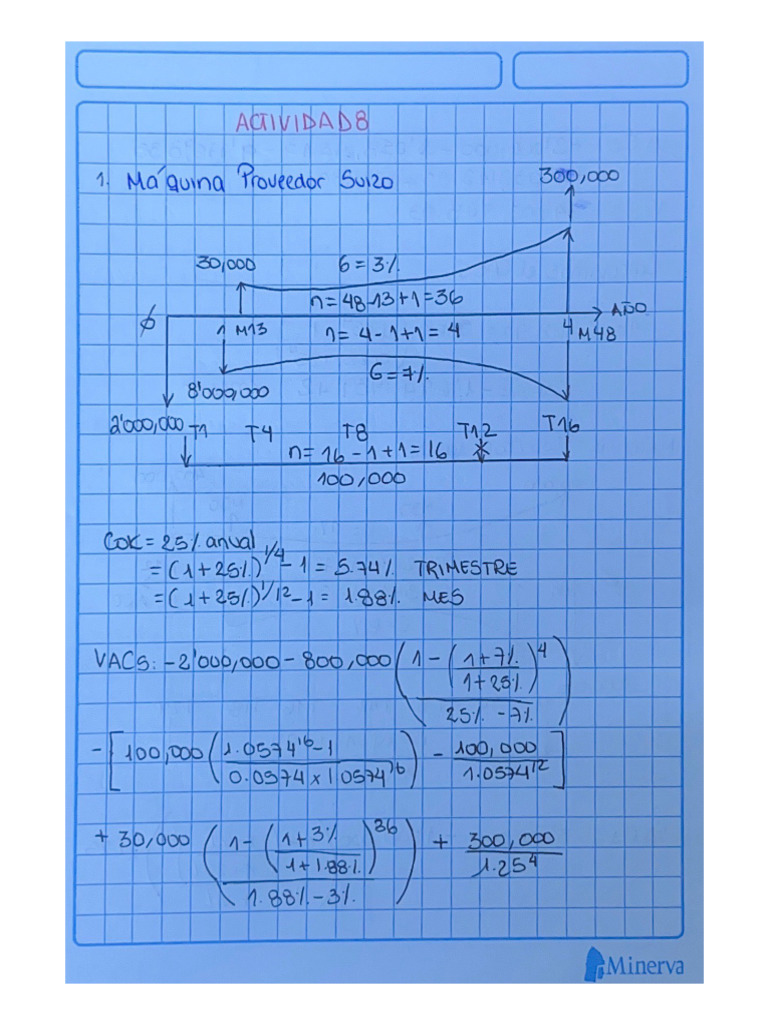 ACTIVIDAD 8
1. Máquina Proveedor Suizo
300,000
30,000 6 = 3%
n = 48-13+1 = 36
∅ 1 M13 n = 4-1+1 = 4 4 M48 AÑO
8'000,000 G = 7%
2'000,000 T1 T4 T8 T12 T16
n = 16-1+1 = 16
100,000
COK = 25% anual
= (1+25%)^1/4 - 1 = 5.74% TRIMESTRE
= (1+25%)^1/12 - 1 = 1.88% MES
VACS: -2'000,000 - 800,000 ( 1 - ( 1+7% / 1+25% )^4 / 25% - 7% )
- [ 100,000 ( 1.0574^16 - 1 / 0.0574 x 1.0574^16 ) - 100,000 / 1.0574^12 ]
+ 30,000 ( 1 - ( 1+3% / 1+1.88% )^36 / 1.88% - 3% ) + 300,000 / 1.25^4
Minerva